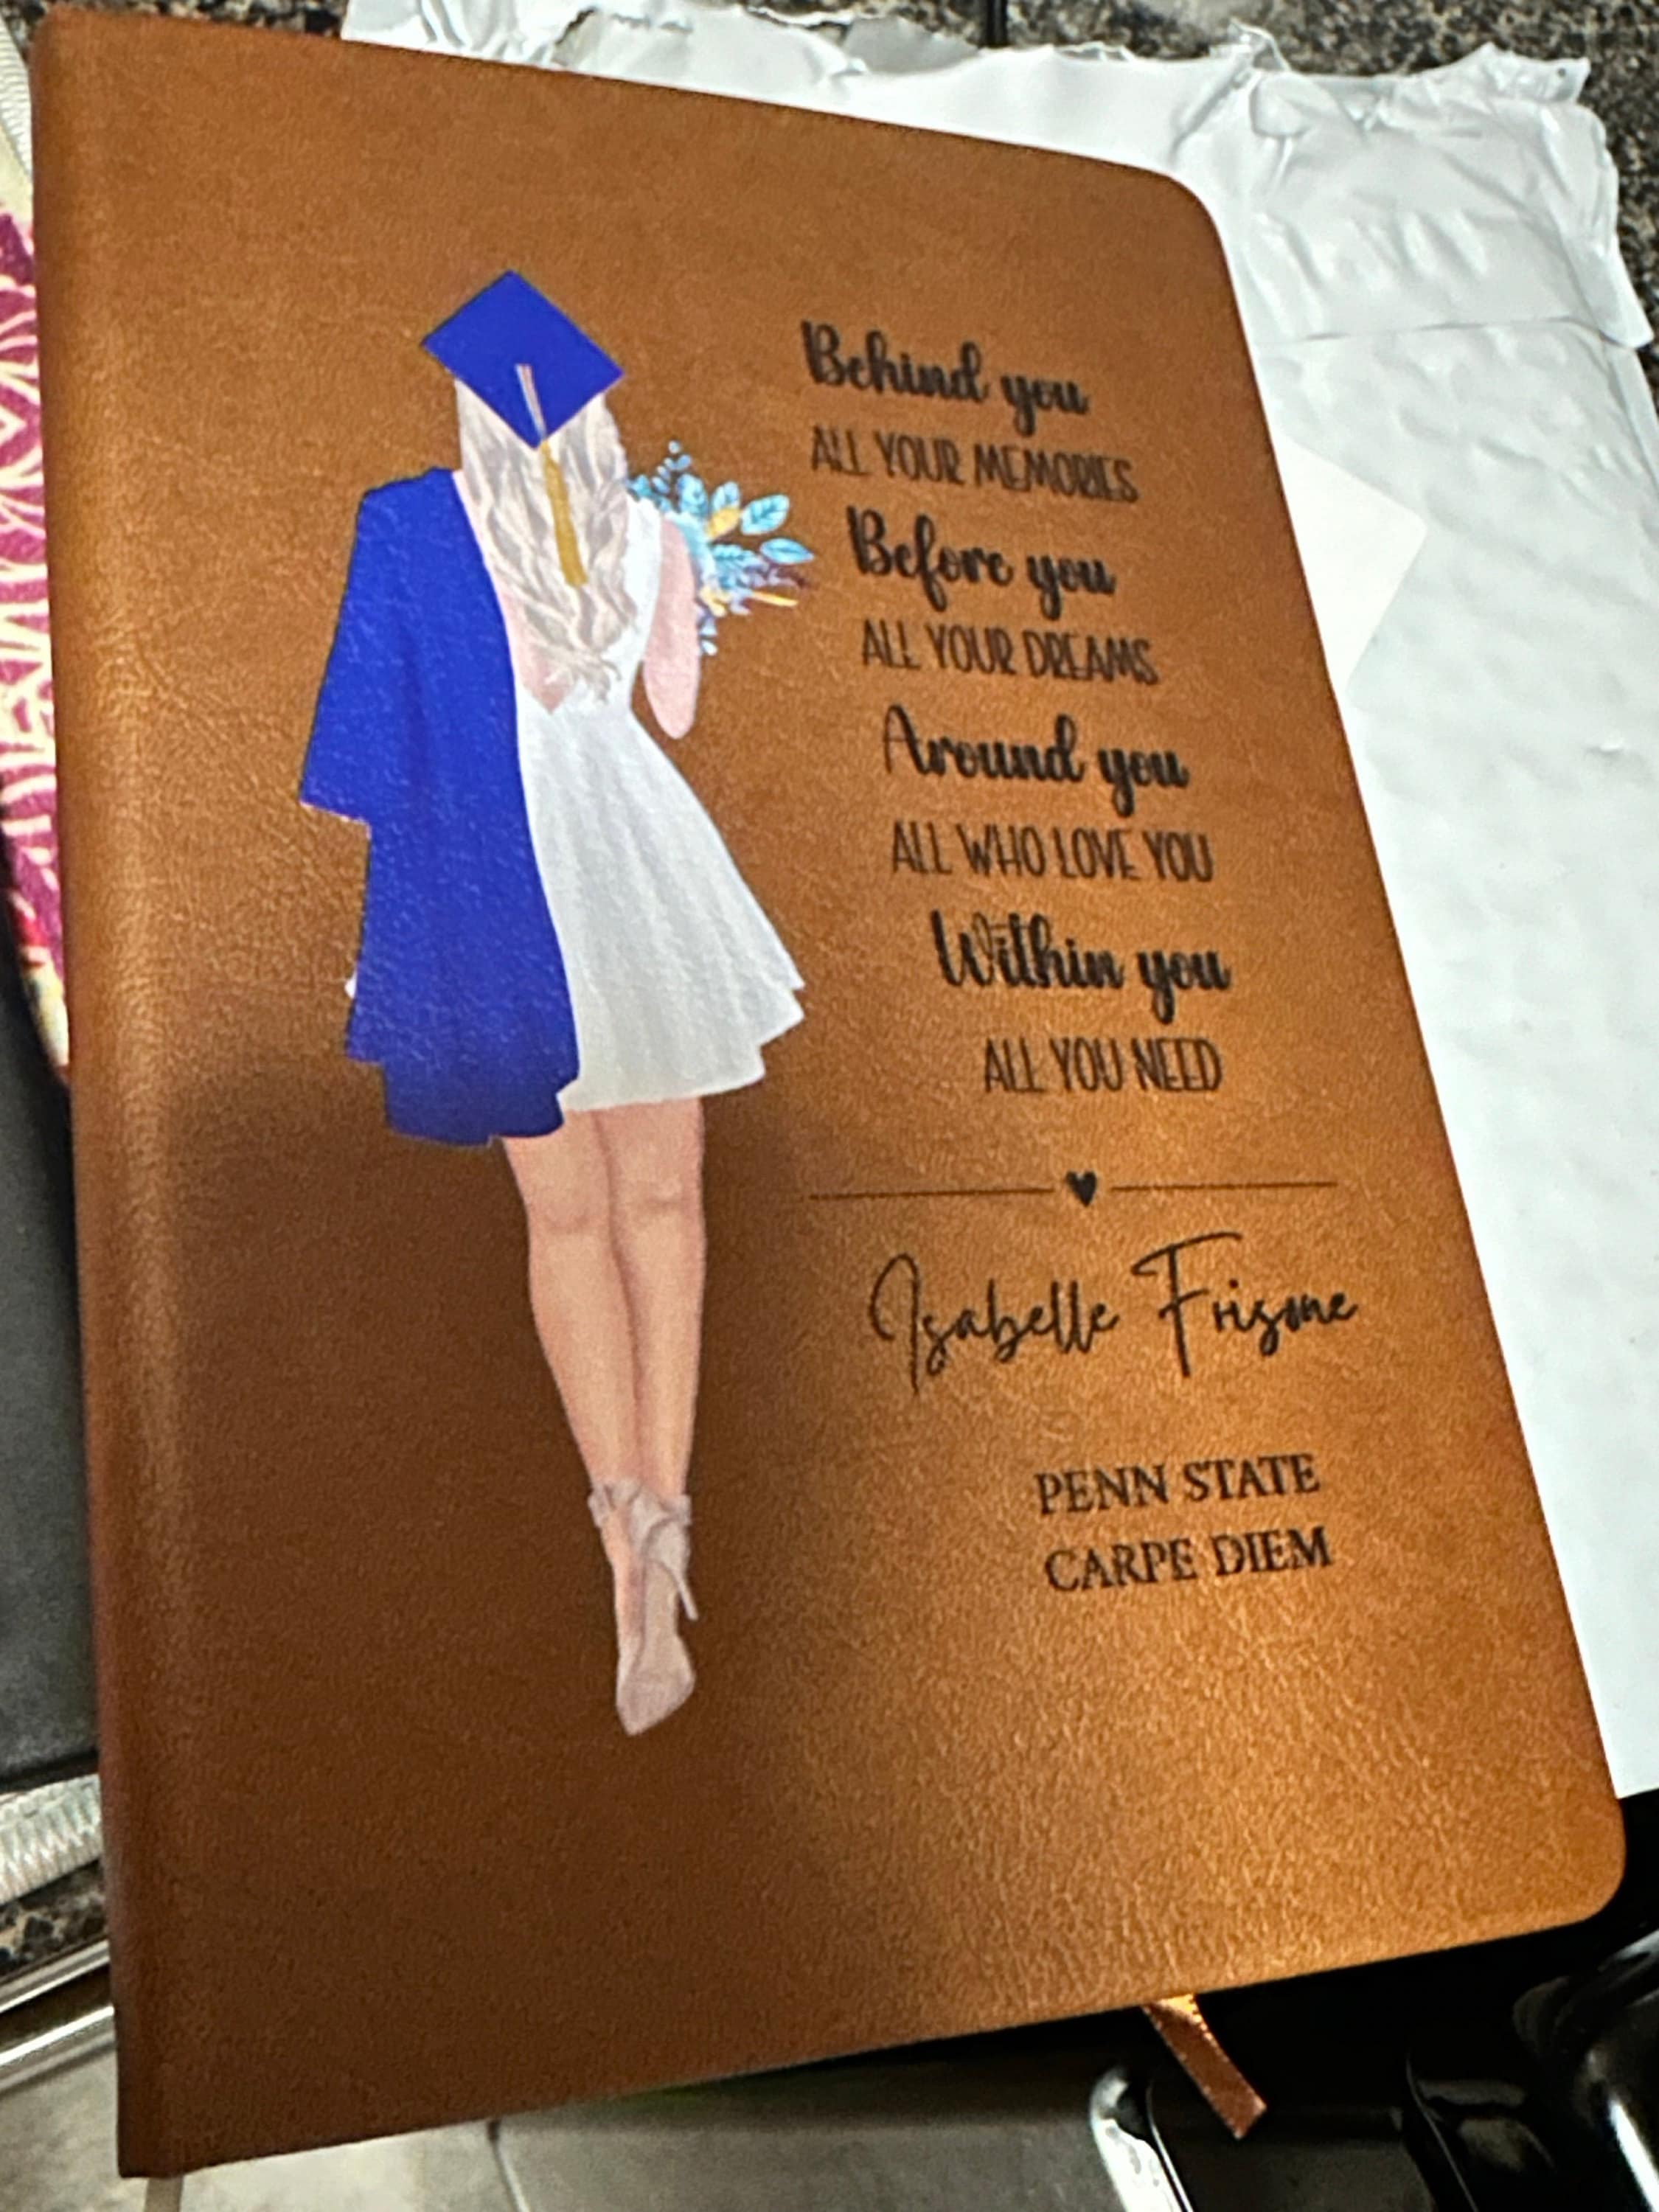 Behind you
ALL YOUR MEMORIES
Before you
ALL YOUR DREAMS
Around you
ALL WHO LOVE YOU
Within you
ALL YOU NEED
Isabelle Frisone
PENN STATE
CARPE DIEM